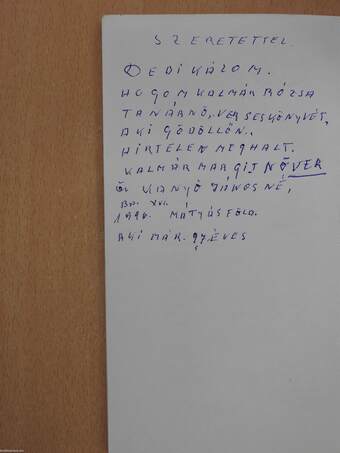 SZERETETTEL
DEDIKÁZOM.
HUGOM KALMÁR RÓZSA
TANÁRNŐ, VERSESKÖNYVÉT,
AKI GÖDÖLLŐN.
HIRTELEN MEGHALT.
KALMÁR MARGIT NŐVER
KANYÓ JÁNOSNÉ,
BP. XVI.
1996. MÁTYÁSFÖLD.
AKI MÁR. 97. ÉVES